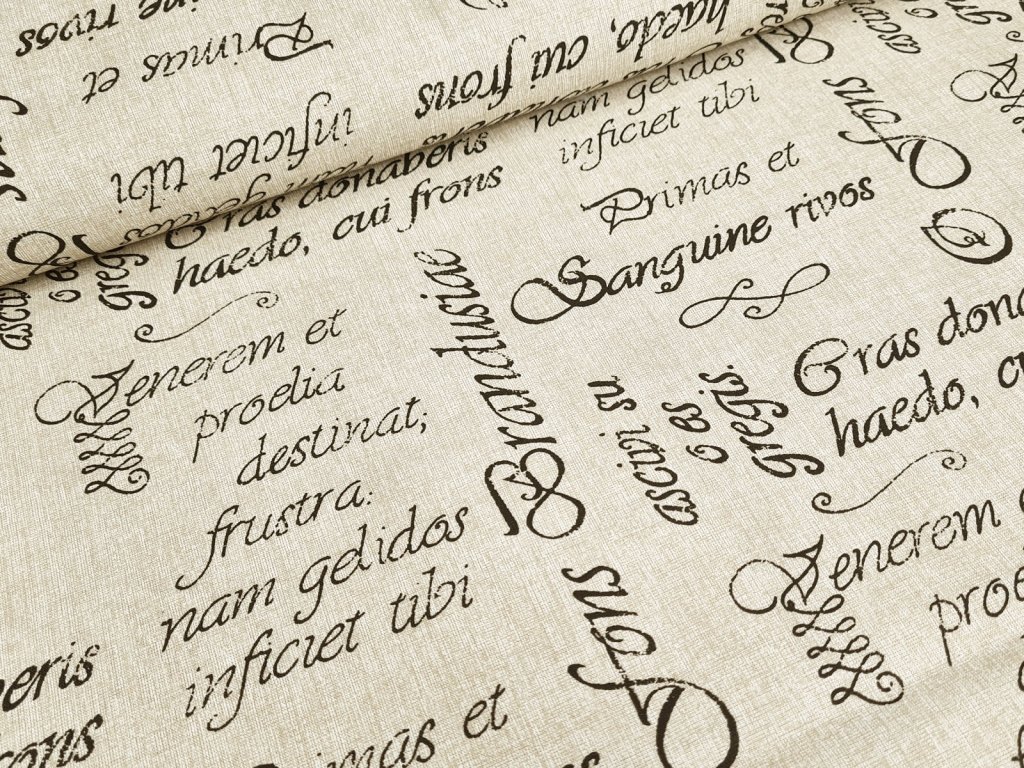 ine rivos
Primas et
inficiet tibi
haedo, cui frons
nam gelidos
inficiet tibi
Primas et
Sanguine rivos
Fons
Cras donaberis
haedo, cui frons
gregis
Venerem et
proelia
destinat;
frustra:
nam gelidos
inficiet tibi
Primas et
eris
rons
Bandusiae
Fons
O
gregis.
ascivi su
Cras dona
haedo, cu
Venerem e
proe